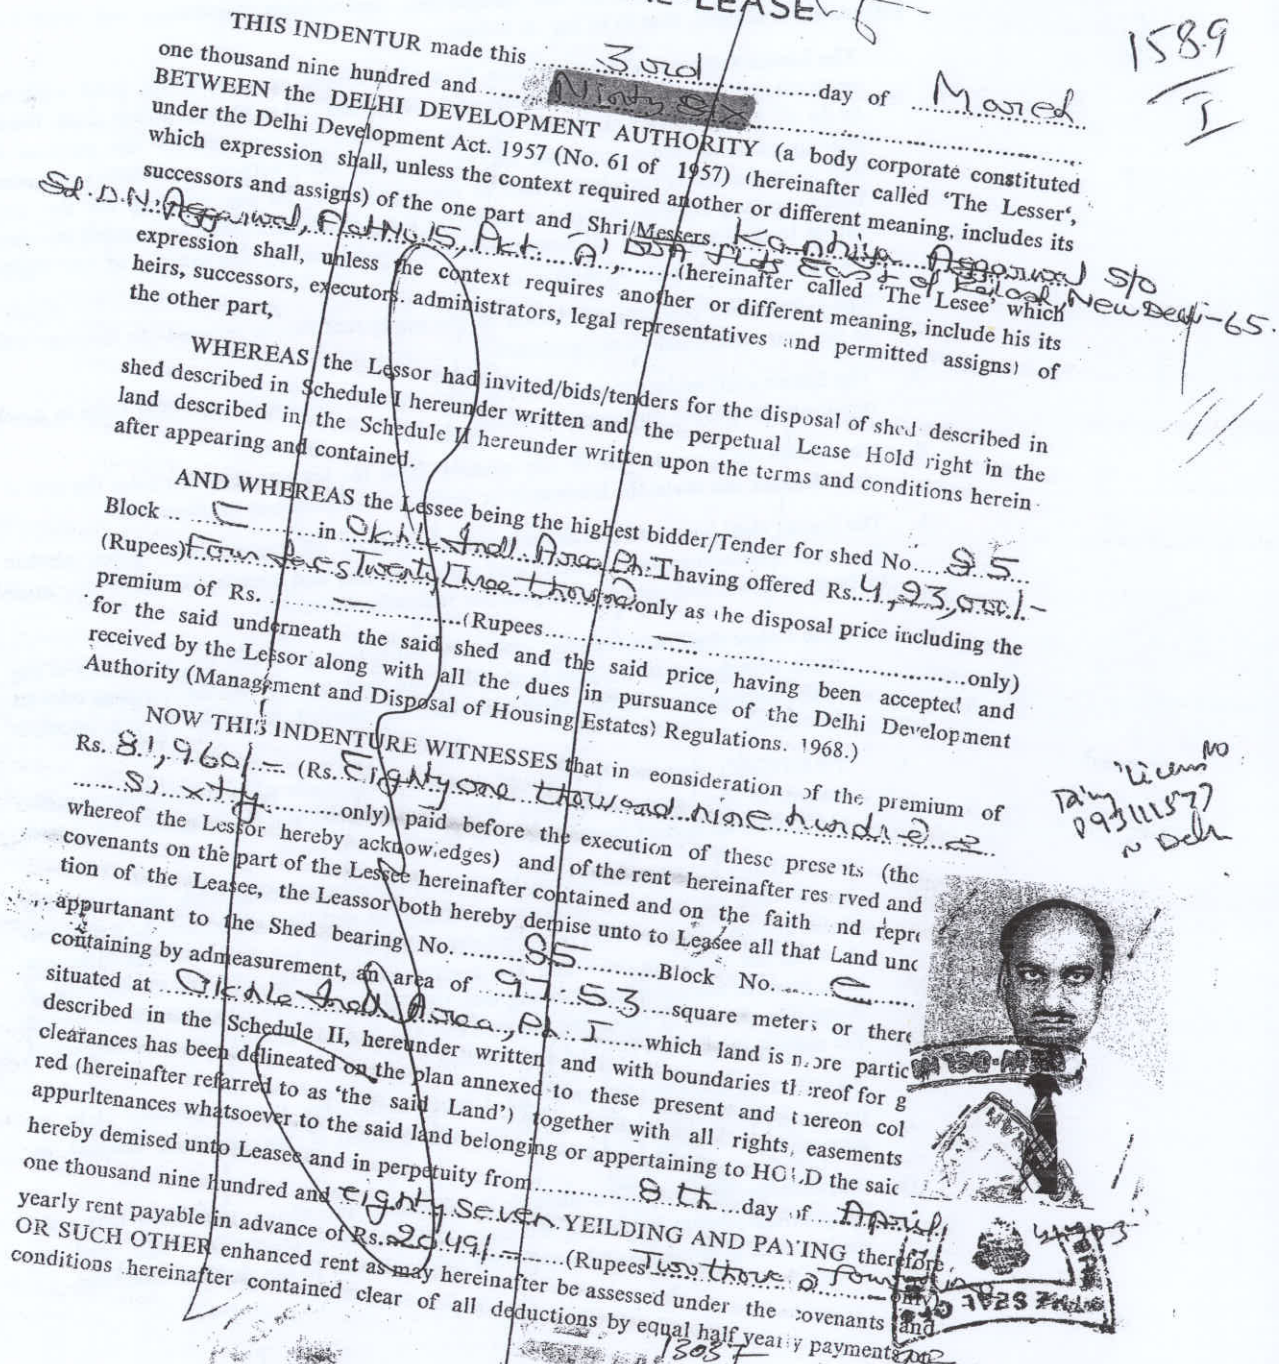 LEASE
1589
I
THIS INDENTUR made this ...... 3rd ......day of ...March...
one thousand nine hundred and ..... Ninty Six ..........
BETWEEN the DELHI DEVELOPMENT AUTHORITY (a body corporate constituted
under the Delhi Development Act. 1957 (No. 61 of 1957) (hereinafter called 'The Lesser',
which expression shall, unless the context required another or different meaning. includes its
successors and assigns) of the one part and Shri/Messers. Kanhiya Aggarwal S/o
Sd. D.N. Aggarwal, Plot No. 15, Pkt. 'A', DDA Flats East of Kailash, New Delhi-65.
(hereinafter called 'The Lesee' which
expression shall, unless the context requires another or different meaning, include his its
heirs, successors, executors. administrators, legal representatives and permitted assigns) of
the other part,
WHEREAS the Lessor had invited/bids/tenders for the disposal of shed described in
shed described in Schedule I hereunder written and the perpetual Lease Hold right in the
land described in the Schedule II hereunder written upon the terms and conditions herein
after appearing and contained.
AND WHEREAS the Lessee being the highest bidder/Tender for shed No....95...
Block.. C ......in Okhla Indl. Area Ph. I having offered Rs. 4,23,000/-
(Rupees) Four Lacs Twenty Three thousand only as the disposal price including the
premium of Rs. .... — ........(Rupees....... — ..............only)
for the said underneath the said shed and the said price, having been accepted and
received by the Lessor along with all the dues in pursuance of the Delhi Development
Authority (Management and Disposal of Housing Estates) Regulations. 1968.)
NOW THIS INDENTURE WITNESSES that in eonsideration of the premium of
Rs. 81,960/- (Rs. Eighty one thousand nine hundred &
Sixty ........only) paid before the execution of these presents (the
whereof the Lessor hereby acknowledges) and of the rent hereinafter reserved and
covenants on the part of the Lessee hereinafter contained and on the faith nd repre
tion of the Leasee, the Leassor both hereby demise unto to Leasee all that Land unc
appurtanant to the Shed bearing No. ......95........Block No. .... C ....
containing by admeasurement, an area of ..97.53....square meters or there
situated at ...Okhla Indl. Area, Ph. I.....which land is more partic
described in the Schedule II, hereunder written and with boundaries thereof for g
clearances has been delineated on the plan annexed to these present and thereon col
red (hereinafter refarred to as 'the said Land') together with all rights, easements
appurltenances whatsoever to the said land belonging or appertaining to HOLD the said
hereby demised unto Leasee and in perpetuity from.......... 8th ....day of ...April,
one thousand nine hundred and eighty Seven. YEILDING AND PAYING therefore,
yearly rent payable in advance of Rs. 2049/- ......(Rupees Two thous & Fourty nine only)
OR SUCH OTHER enhanced rent as may hereinafter be assessed under the covenants and
conditions hereinafter contained clear of all deductions by equal half yearly payments on
13037
Licens No
P93111577
Delh